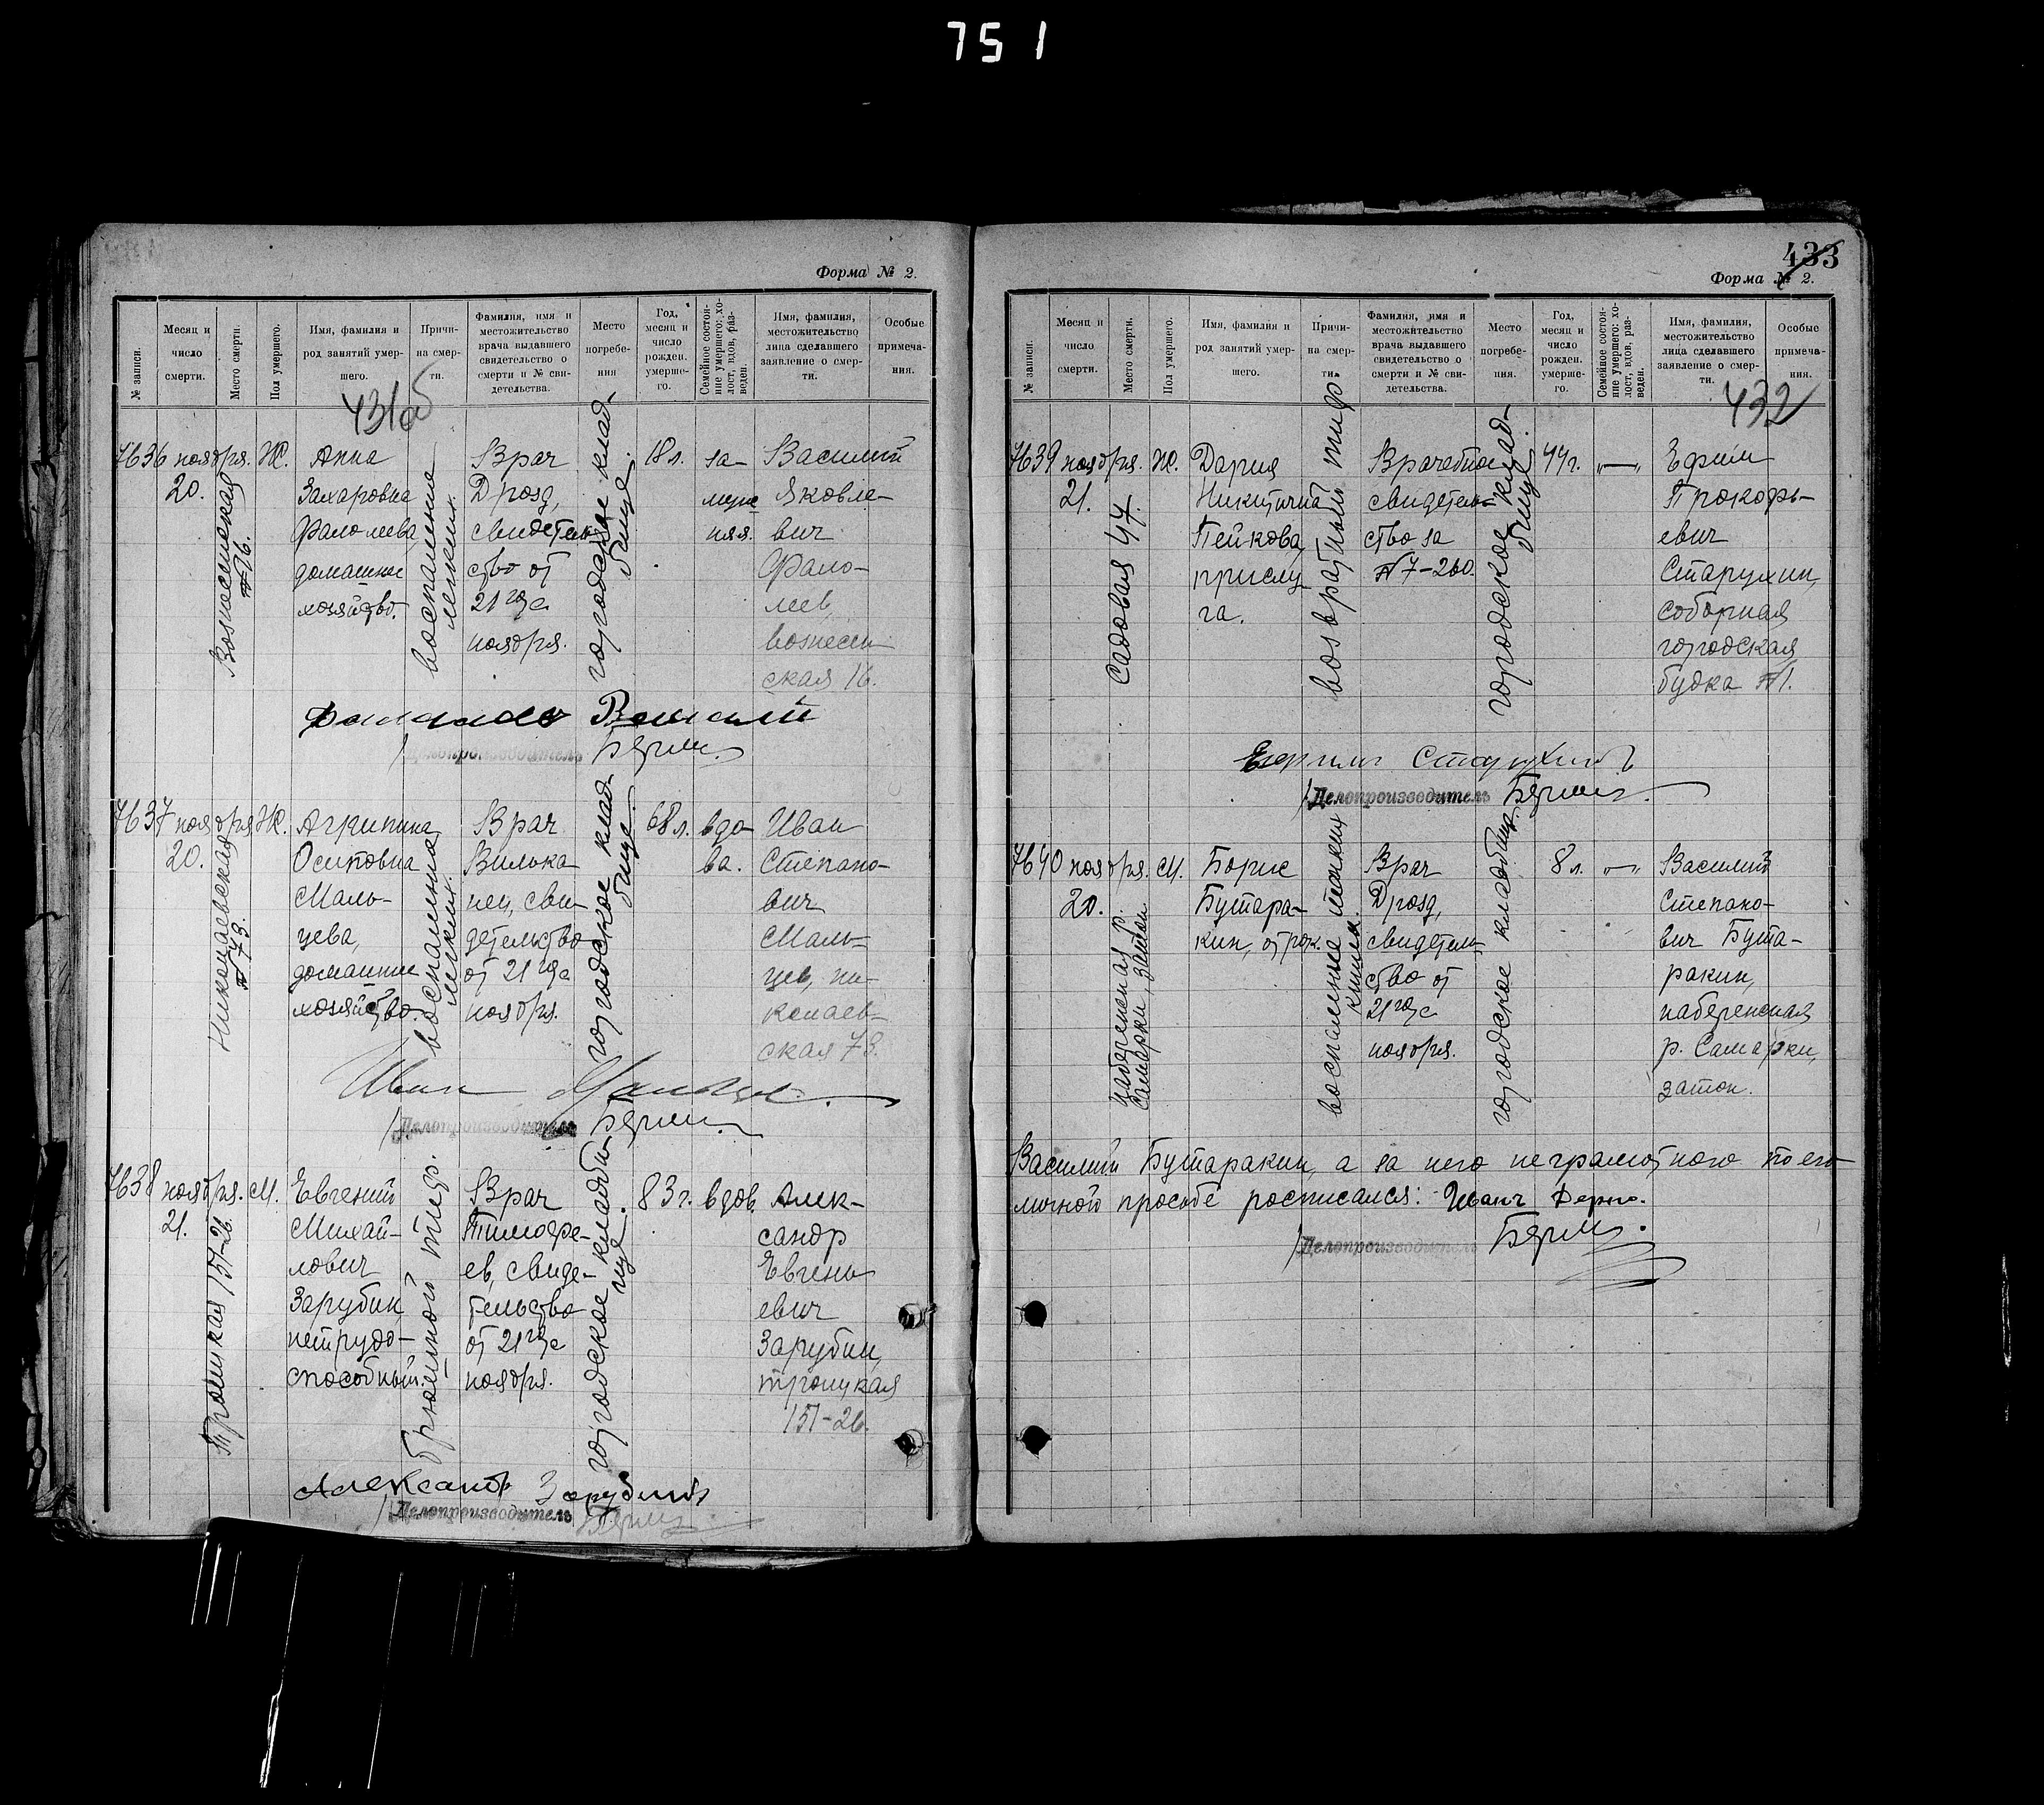 751
Форма № 2.
№ записи.
Месяц и число смерти.
Место смерти.
Пол умершего.
Имя, фамилия и род занятий умершего.
Причина смерти.
Фамилия, имя и местожительство врача выдавшего свидетельство о смерти и № свидетельства.
Место погребения
Год, месяц и число рожден. умершего.
Семейное состояние умершего: холост, вдов, разведен.
Имя, фамилия, местожительство лица сделавшего заявление о смерти.
Особые примечания.
431об
7636
ноября.
20.
Вознесенская
№ 16.
Ж.
Анна
Захаровна
домашнее
хозяйство.
воспаление
легких.
Врач
Дрозд,
свидетель-
ство от
21го
ноября.
городское клад-
бище.
18 л.
за-
муж
няя.
Василий
Яковле-
вич
Фало-
леев,
вознесен
ская 16.
Василий
Делопроизводитель
7637
ноября
20.
Николаевская
№ 73.
Ж.
Агрипина
Осиповна
Маль-
цева,
домашнее
хозяйство.
воспаление
легких.
Врач
Вилька-
нец, сви-
детельство
от 21го
ноября.
городское клад-
бище.
68 л.
вдо-
ва.
Иван
Степано-
вич
Маль-
цев, ни-
колаев-
ская 73.
Иван Мальцев.
Делопроизводитель
7638
ноября.
21.
Троицкая 151-26.
М.
Евгений
Михай-
лович
Зарубин,
нетрудо-
способный.
брюшной тиф.
Врач
Тимофе-
ев, свиде-
тельство
от 21го
ноября.
городское кладби-
ще.
83 г.
вдов.
Алек-
сандр
Евгень
евич
Зарубин,
троицкая
151-26.
Александр Зарубинъ
Делопроизводитель
433
Форма № 2.
№ записи.
Месяц и число смерти.
Место смерти.
Пол умершего.
Имя, фамилия и род занятий умершего.
Причина смерти.
Фамилия, имя и местожительство врача выдавшего свидетельство о смерти и № свидетельства.
Место погребения.
Год, месяц и число рожден. умершего.
Семейное состояние умершего: холост, вдов, разведен.
Имя, фамилия, местожительство лица сделавшего заявление о смерти.
Особые примечания.
432
7639
ноября.
21.
Садовая 47.
Ж.
Дария
Никитична
Пейкова,
прислу
га.
возвратный тиф.
Врачебное
свидетель-
ство за
№ 7-260.
городское клад-
бище.
44 г.
"—"
Ефим
Прокофь-
евич
Старухин,
соборная
городская
будка №1.
Ефимъ Старухинъ
Делопроизводитель
7640
ноября.
20.
набережная р.
Самарки, затон
М.
Борис
Бутара-
кин, отрок.
воспаление тонких
кишек.
Врач
Дрозд,
свидетель-
ство от
21го
ноября.
городское кладбище.
8 л.
"—"
Василий
Степано-
вич Бута-
ракин,
набережная
р. Самарки,
затон.
Василий Бутаракин, а за него неграмотного по его
личной просьбе росписался: Иванъ
Делопроизводитель